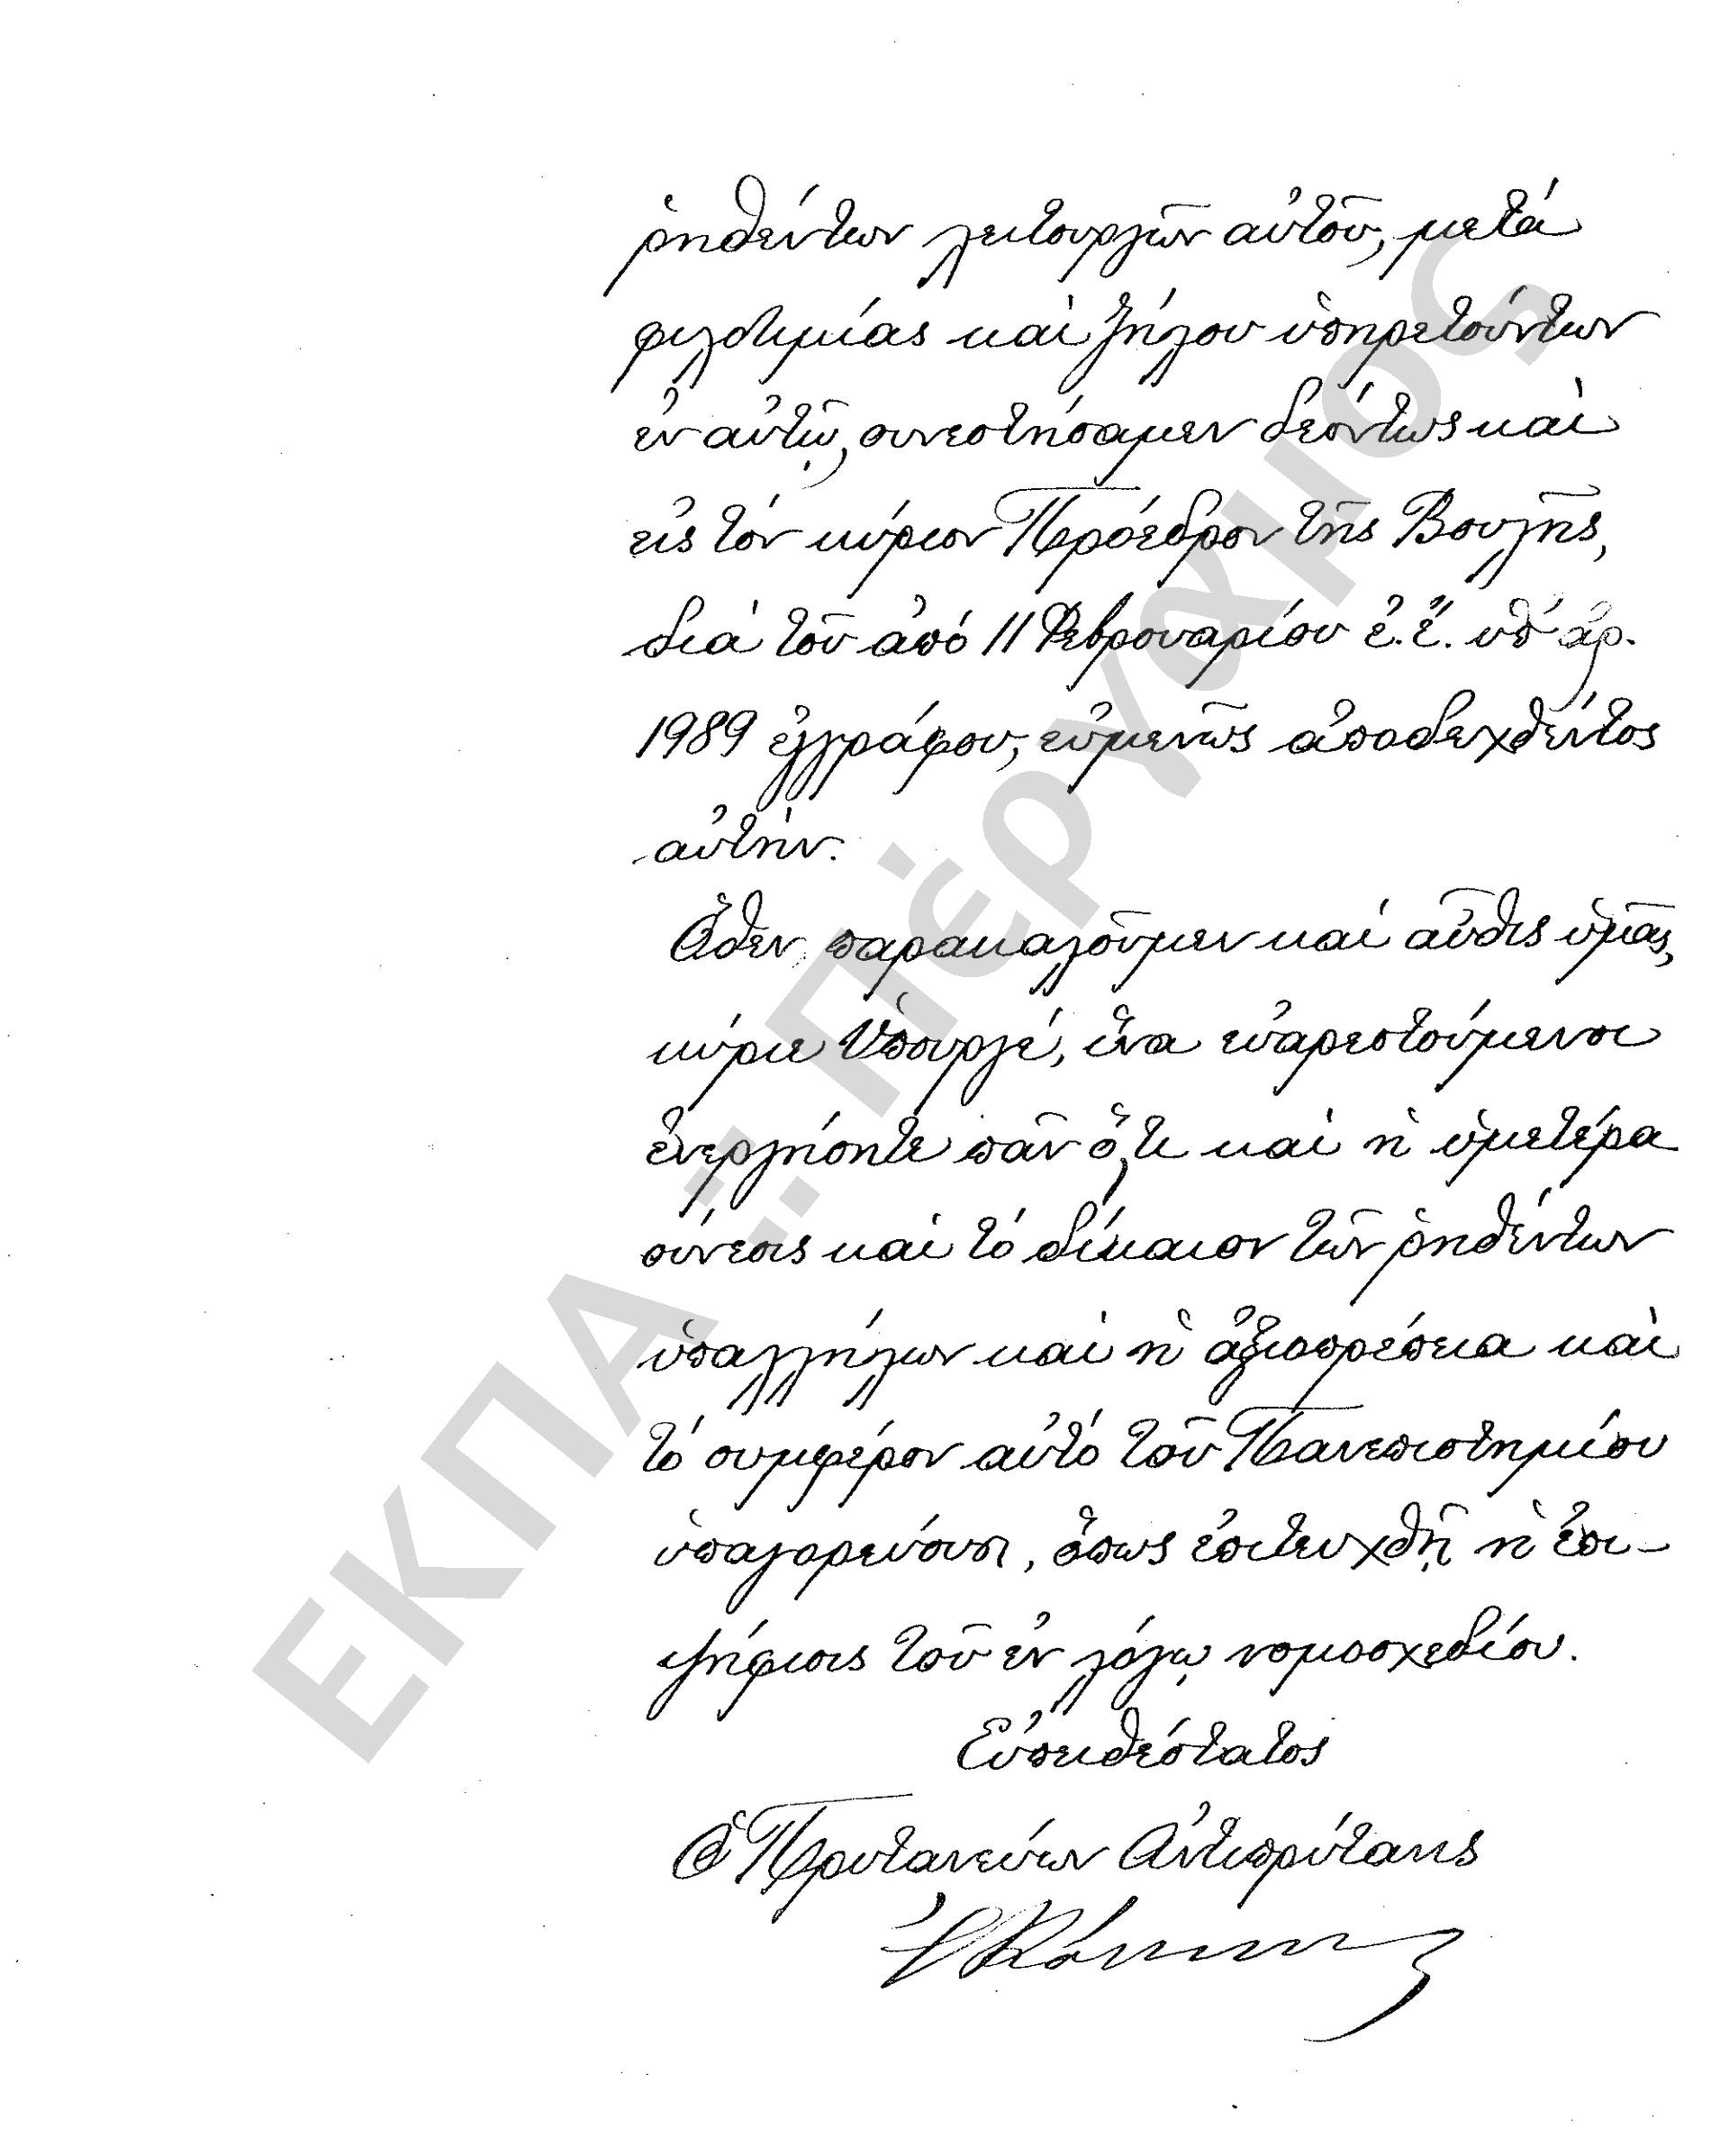 ῥηθέντων λειτουργῶν αὐτοῦ, μετά
φιλοτιμίας καὶ ζήλου ὑπηρετούντων
ἐν αὐτῷ, συνεστήσαμεν δεόντως καὶ
εἰς τόν κύριον Πρόεδρον τῆς Βουλῆς,
διὰ τοῦ ἀπό 11 Φεβρουαρίου ἐ.ἔ. ὑπ' ἀρ.
1989 ἐγγράφου, εὐμενῶς ἀποδεχθέντος
αὐτὴν.
Ὅθεν παρακαλοῦμεν καί αὖθις ὑμᾶς,
κύριε Ὑπουργέ, ἵνα εὐαρεστούμενοι
ἐνεργήσητε πᾶν ὅ,τι καὶ ἡ ὑμετέρα
σύνεσις καὶ τό δίκαιον τῶν ῥηθέντων
ὑπαλλήλων καὶ ἡ ἀξιοπρέπεια καὶ
τό συμφέρον αὐτό τοῦ Πανεπιστημίου
ὑπαγορεύουσι, ὅπως ἐπιτευχθῇ ἡ ἐπι-
ψήφισις τοῦ ἐν λόγῳ νομοσχεδίου.
Εὐπειθέστατος
Ὁ Πρυτανεύων Ἀντιπρύτανις
ΕΚΠΑ